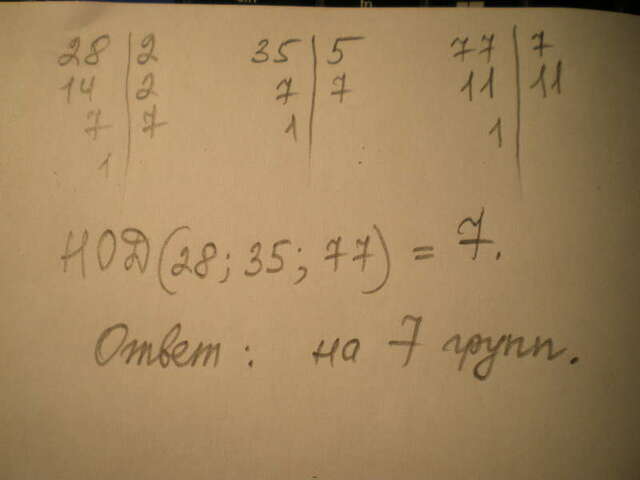 28 | 2 35 | 5 77 | 7
14 | 2 7 | 7 11 | 11
7 | 7 1 | 1 |
1 |
НОД(28; 35; 77) = 7.
Ответ: на 7 групп.